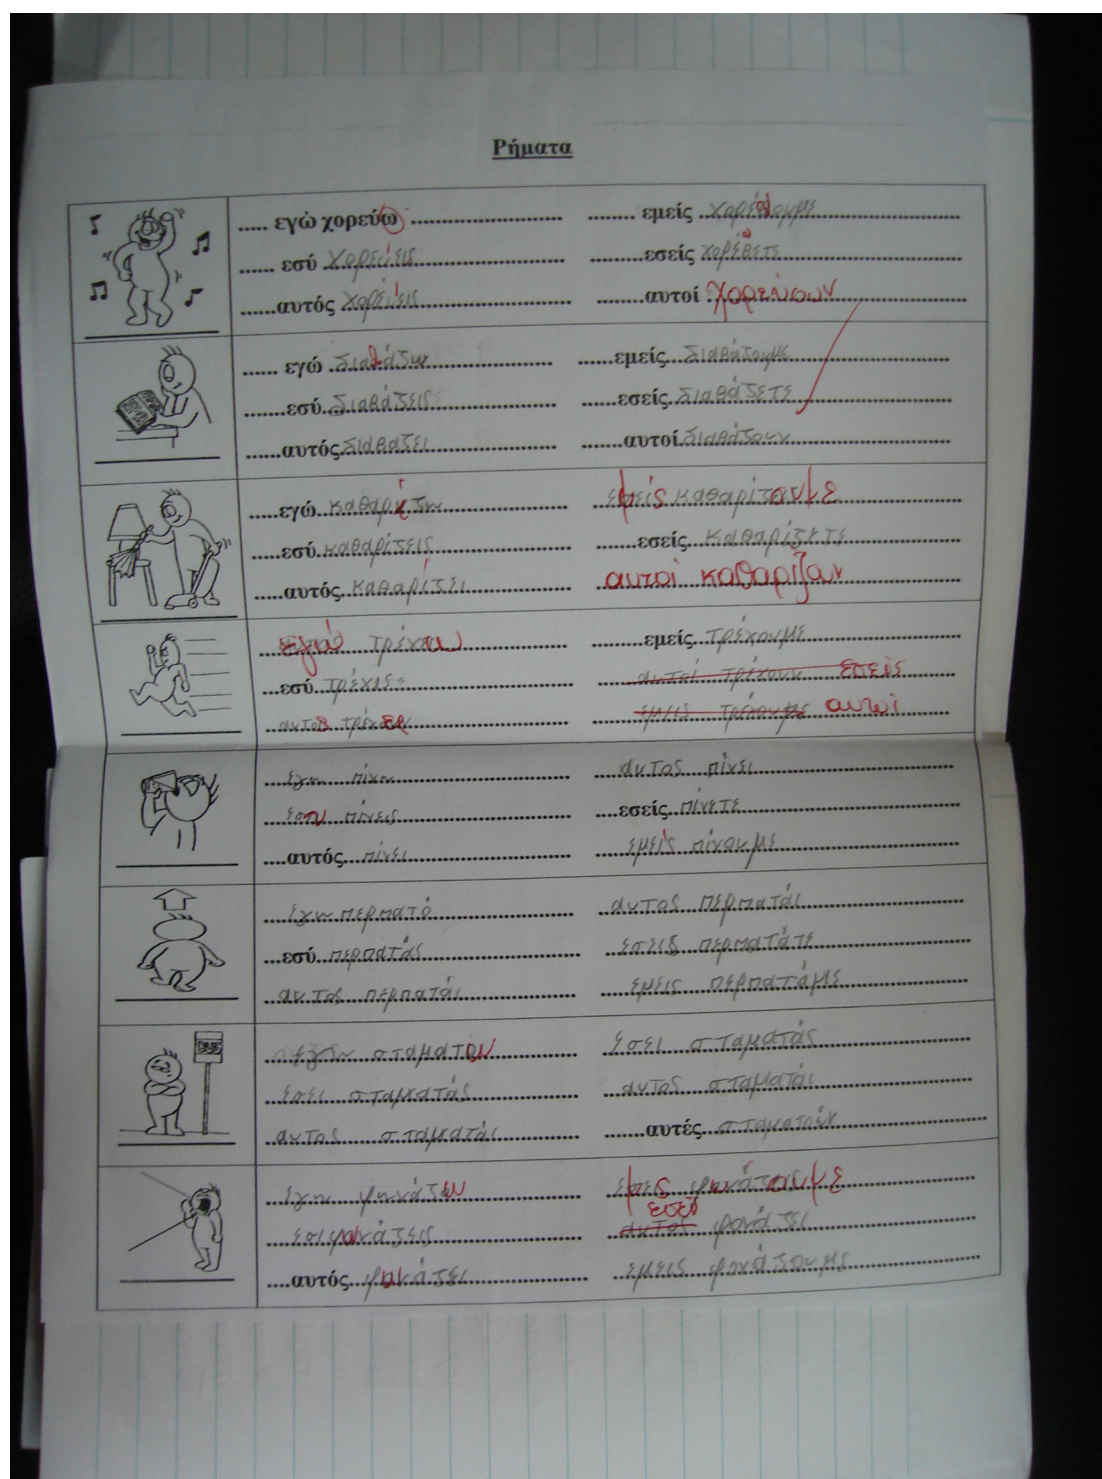 Ρήματα
..... εγώ χορεύω ........ εμείς χορέυουμε
...... εσύ χορεύεις ........εσείς χορέβετε
......αυτός χορεύεις ........αυτοί χορεύουν
...... εγώ διαβάζω ......εμείς διαβάζουμε
......εσύ διαβάζεις ......εσείς διαβάζετε
......αυτός διαβάζει ......αυτοί διαβάζουν
.....εγώ καθαρίζω εμείς καθαρίζουμε
.....εσύ καθαρίζεις ......εσείς καθαρίζετε
.....αυτός καθαρίζει αυτοί καθαρίζουν
εγώ τρέχω ......εμείς τρέχουμε
...εσύ τρέχεις αυτοί τρέχουν εσείς
αυτος εμεις τρέχουμε αυτοί
εγω πίνω αυτος πίνει
εσυ πίνεις ....εσείς πίνετε
....αυτός πίνει εμείς πίνουμε
εγω περπατό αυτος περπατάι
...εσύ περπατάς εσεις περπατάτε
αυτος περπατάι εμεις περπατάμε
εγω σταματω εσει σταματάς
εσει σταματάς αυτος σταματάι
BUS
αυτος σταματάι ........αυτές σταματούν
εγω φωνάζω εμεις φωνάζουμε
εσι φωνάζεις αυτος φονάζει
....αυτός φωνάζει εμεις φονάζουμε